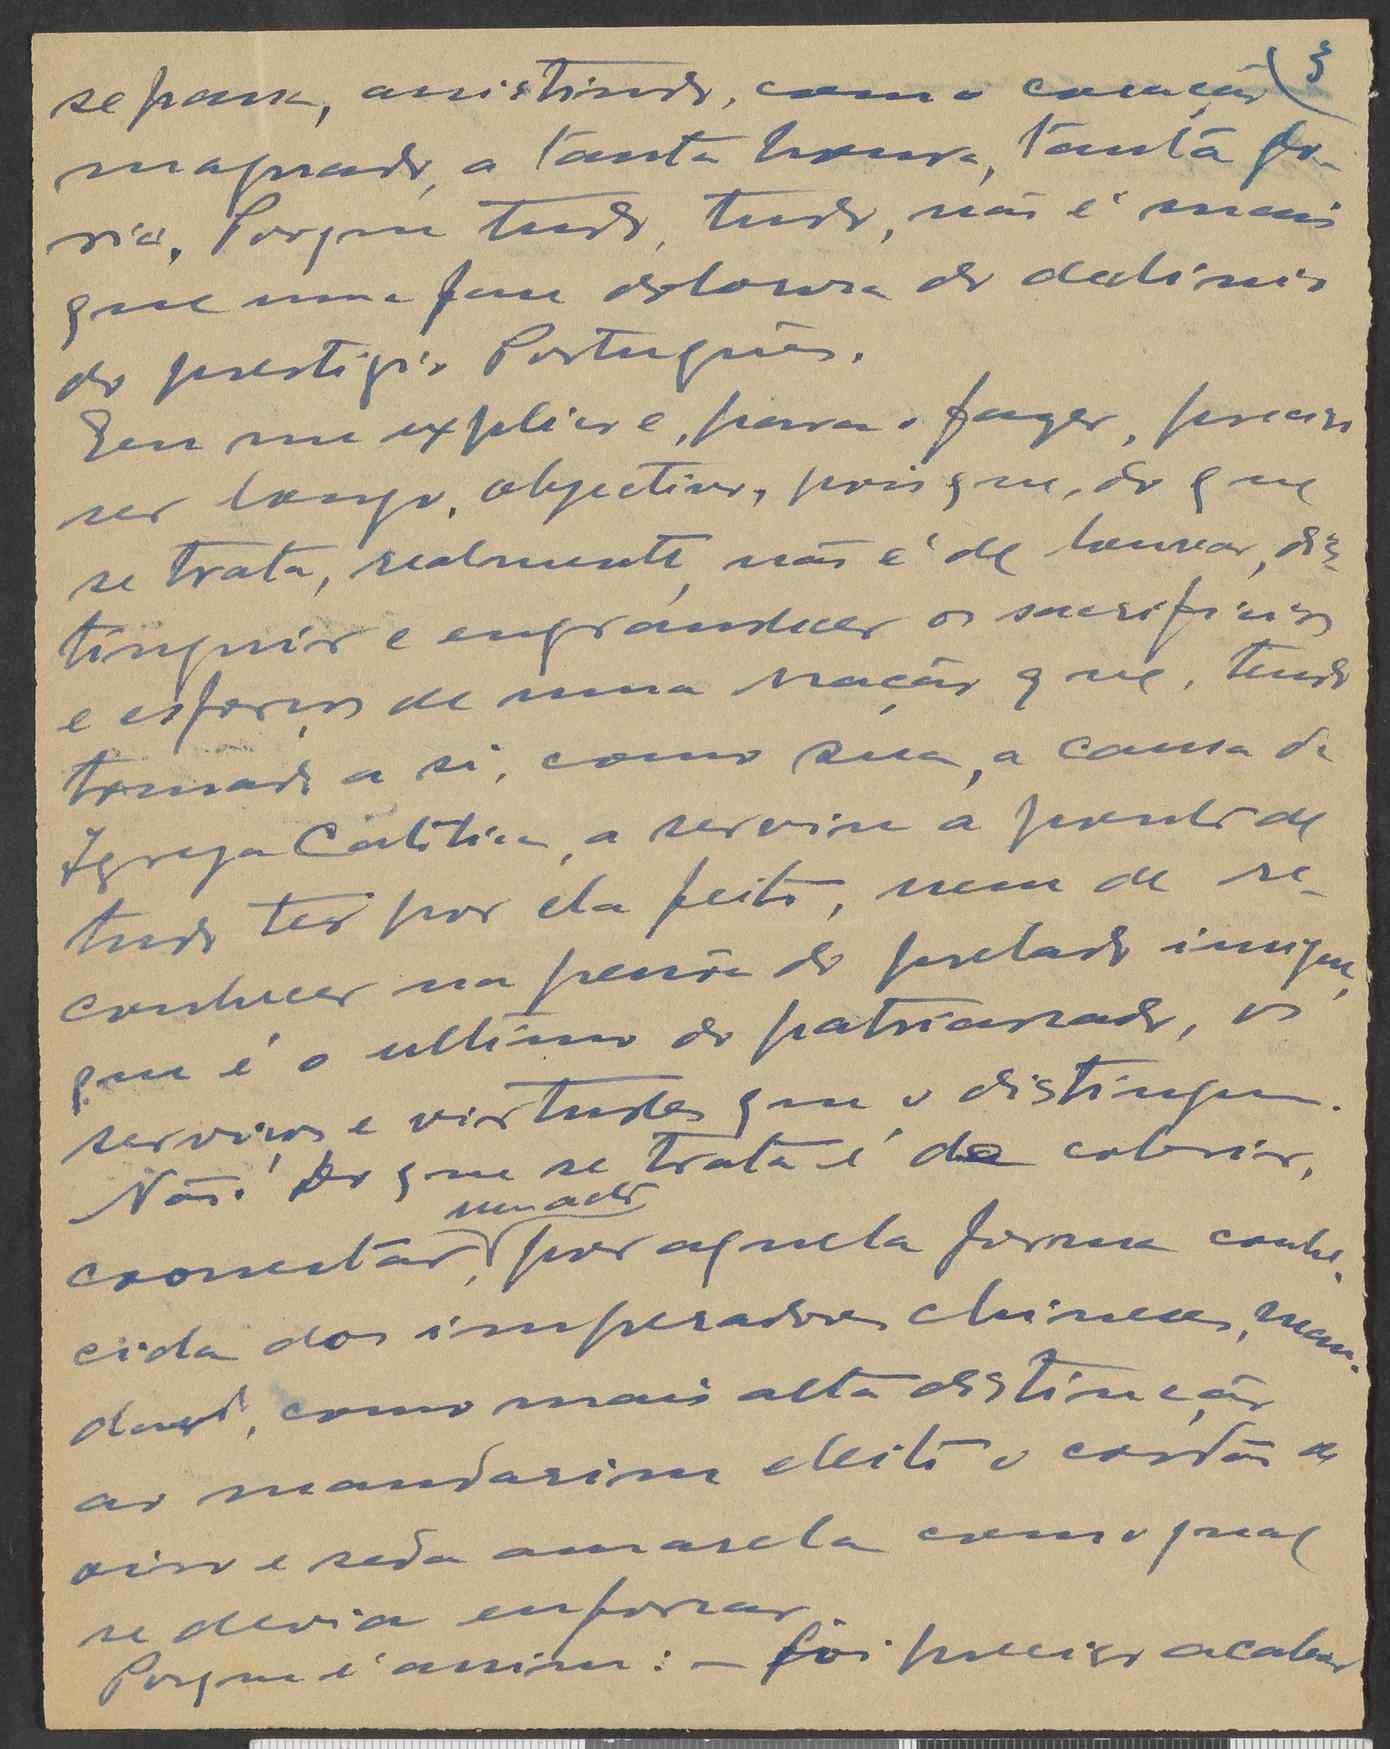 3
se passa, assistindo, com o coração
magoado, a tanta honra, tanta glo-
ria. Porque tudo, tudo, não é mais
que uma fase dolorosa do declinio
do prestigio Português.
Eu me explico e, para o fazer, preciso
ser longo, objectivo, pois que, do que
se trata, realmente, não é de louvar, dis-
tinguir e engrandecer os sacrificios
e esforços de uma nação que, tendo
tomado a si, como sua, a causa da
Igreja Catolica, a serviu a ponto de
tudo ter por ela feito, nem de re-
conhecer na pessôa do prelado insigne,
que é o ultimo do patriarcado, os
serviços e virtudes que o distinguem.
Não! Do que se trata é de cobrir,
um acto
coonestar, por aquela forma conhe-
cida dos imperadores chineses, man-
dando, como mais alta distincção
ao mandarim eleito o cordão de
oiro e seda amarela com o qual
se devia enforcar.
Porque é assim: — foi preciso acabar